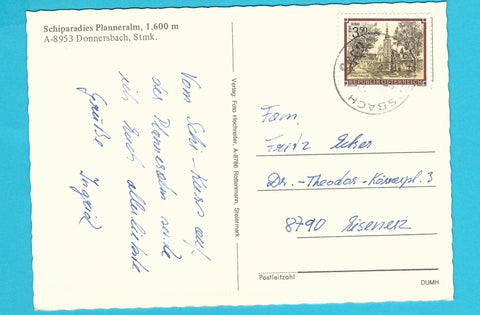 Schiparadies Planneralm, 1.600 m
A-8953 Donnersbach, Stmk.
Vom Schi-Kurs auf
der Planneralm sende
ich Euch allerliebste
Grüße Ingrid
Verlag: Foto Hochreiter, A-8786 Rottenmann, Steiermark
REPUBLIK ÖSTERREICH
Fam.
Fritz Ecker
Dr.-Theodor-Körnerpl. 3
8790 Eisenerz
Postleitzahl
DUMH